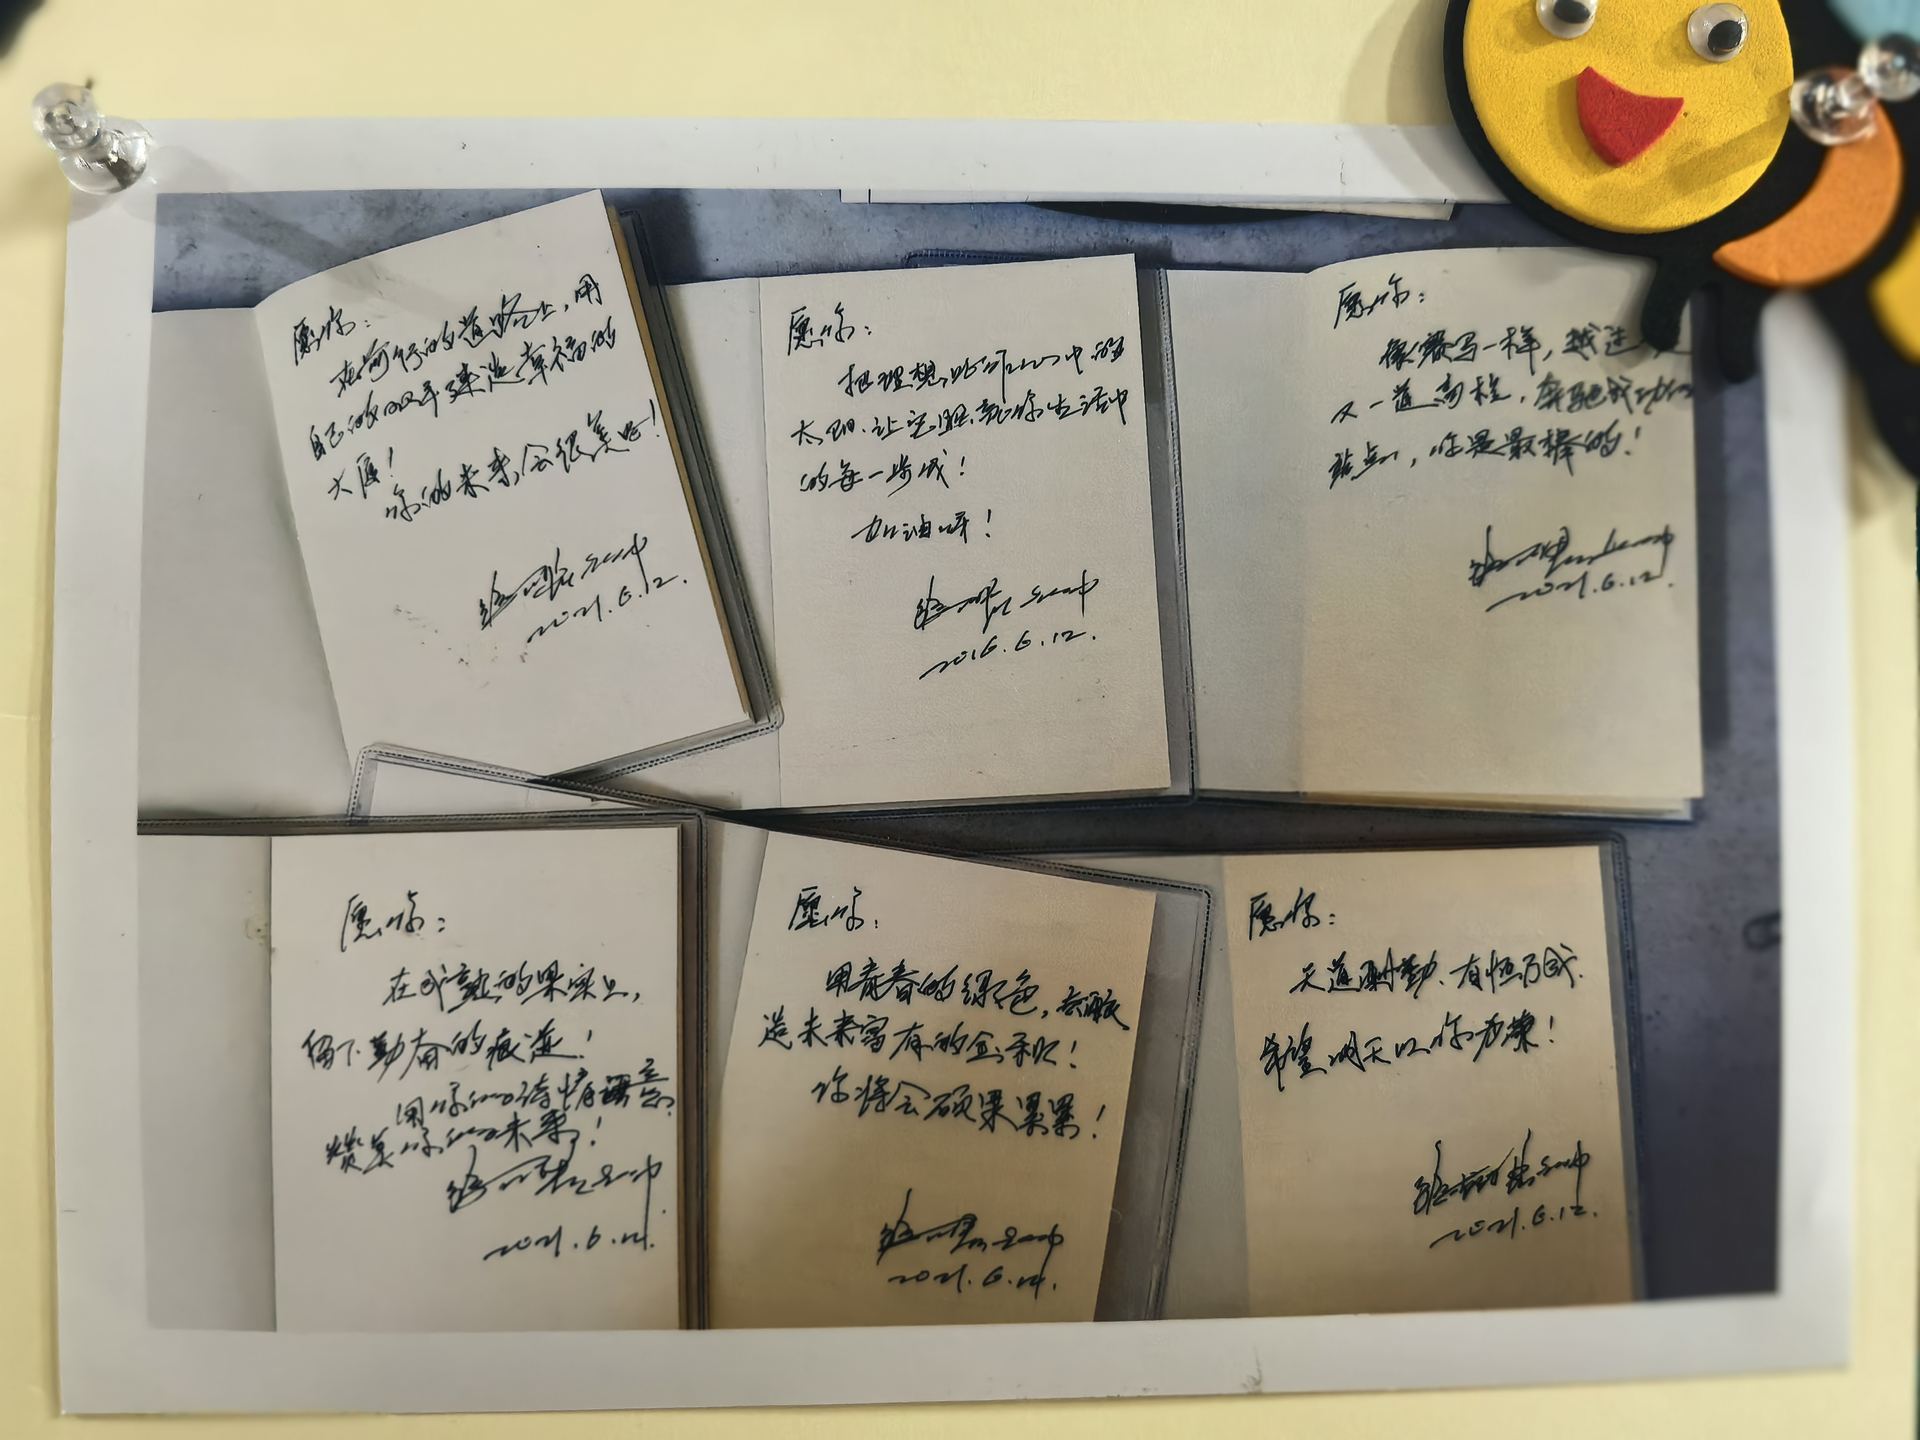 愿你：
在前行的道路上，用
自己的双手建造幸福的
大厦！
你的未来会很美哈！
2021.6.12.
愿你：
把理想比所以中的
太阳、让它照亮你生活中
的每一步成！
加油呀！
2016.6.12.
愿你：
像赛马一样，越过一
又一道高栏，奔驰成功的
站点，你是最棒的！
2021.6.12.
愿你：
在成熟的果实上，
留下勤奋的痕迹！
用你的诗情
赞美你的未来！
2021.6.12.
愿你：
用青春的绿色，去酿
造未来富有的金秋！
你将会硕果累累！
2021.6.12.
愿你：
天道酬勤、有恒乃成.
希望明天以你为荣！
2021.6.12.